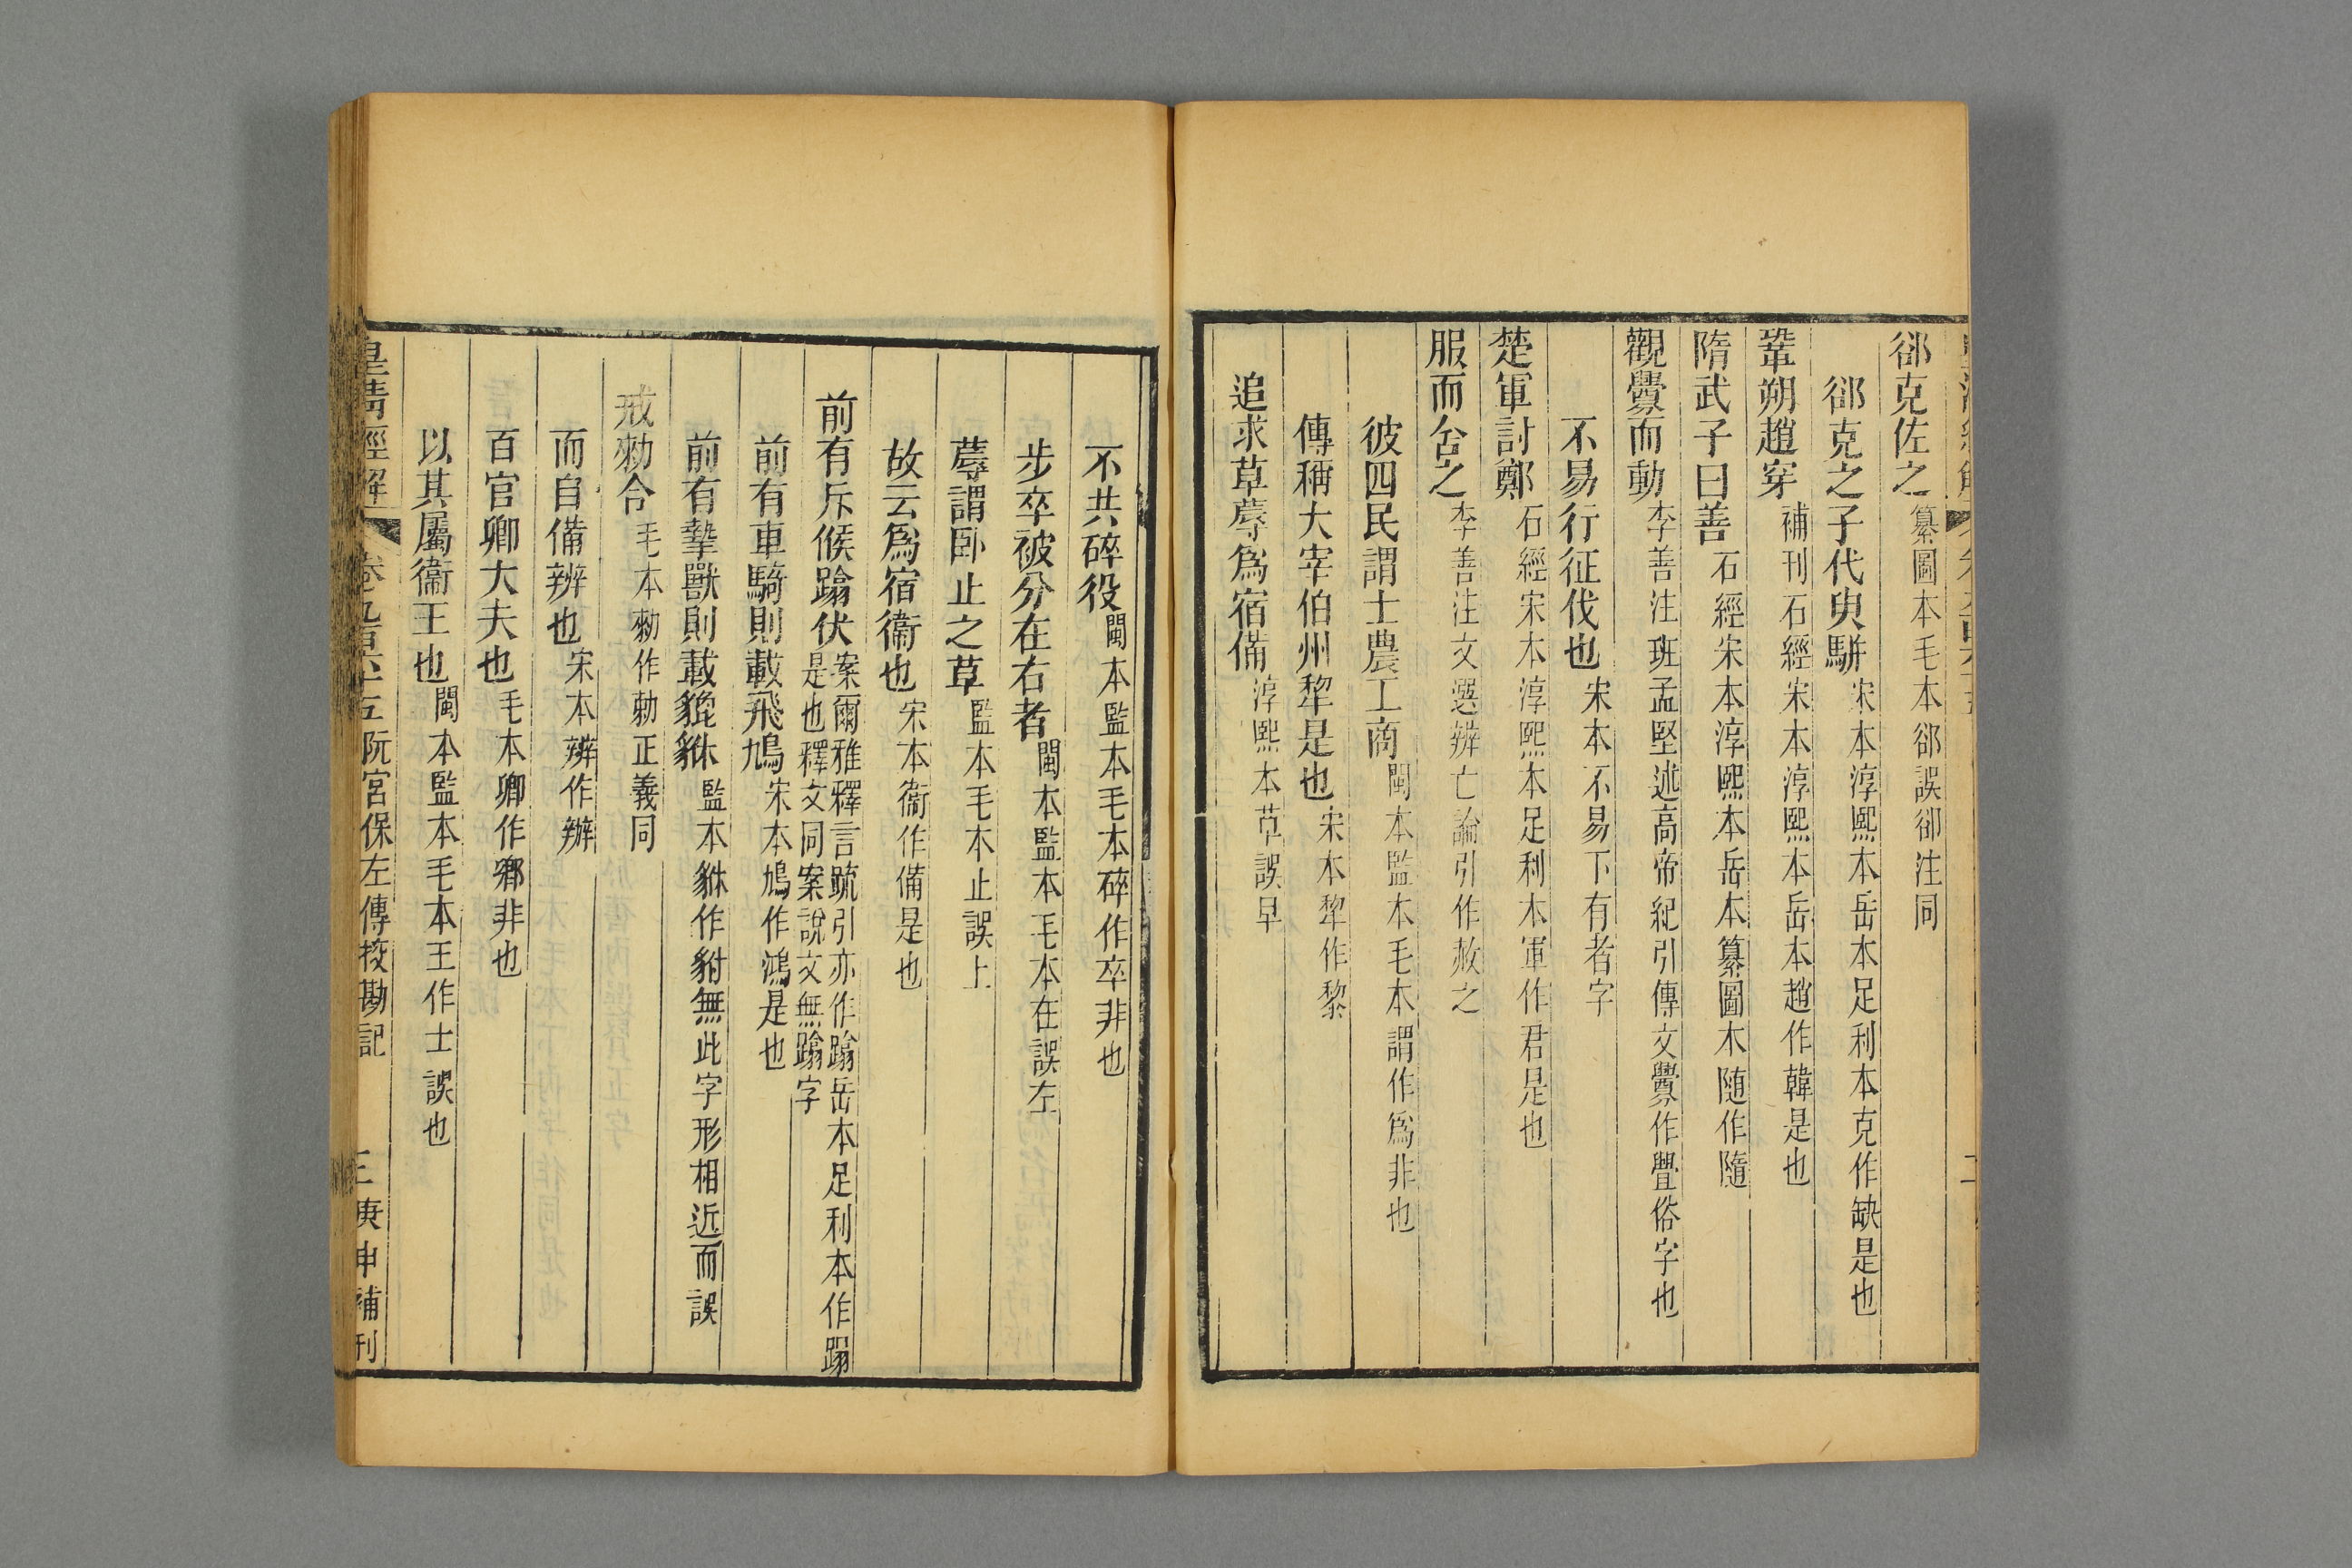 郤克佐之纂圖本毛本郤誤卻注同
郤克之子代臾駢宋本淳熙本岳本足利本克作缺是也
鞏朔趙穿補刊石經宋本淳熙本岳本趙作韓是也
隋武子曰善石經宋本淳熙本岳本纂圖本隨作隨
觀釁而動李善注班孟堅述高帝紀引傳文釁作舋俗字也
不易行征伐也宋本不易下有者字
楚軍討鄭石經宋本淳熙本足利本軍作君是也
服而舍之李善注文選辨亡論引作赦之
彼四民謂士農工商閩本監本毛本謂作爲非也
傳稱大宰伯州犂是也宋本犂作黎
追求草蓐爲宿備淳熙本草誤早
不共碎役閩本監本毛本碎作卒非也
步卒被分在右者閩本監本毛本在誤左
蓐謂臥止之草監本毛本止誤上
故云爲宿衞也宋本衞作備是也
前有斥候蹹伏案爾雅釋言疏引亦作蹹岳本足利本作蹋
是也釋文同案說文無蹹字
前有車騎則載飛鳩宋本鳩作鴻是也
前有摯獸則載貔貅監本貅作豺無此字形相近而誤
戒勑令毛本勑作勅正義同
而自備辨也宋本辨作辦
百官卿大夫也毛本卿作鄉非也
以其屬衞王也閩本監本毛本王作士誤也
皇清經解 卷九百六十五 阮宮保左傳挍勘記 三 庚申補刊